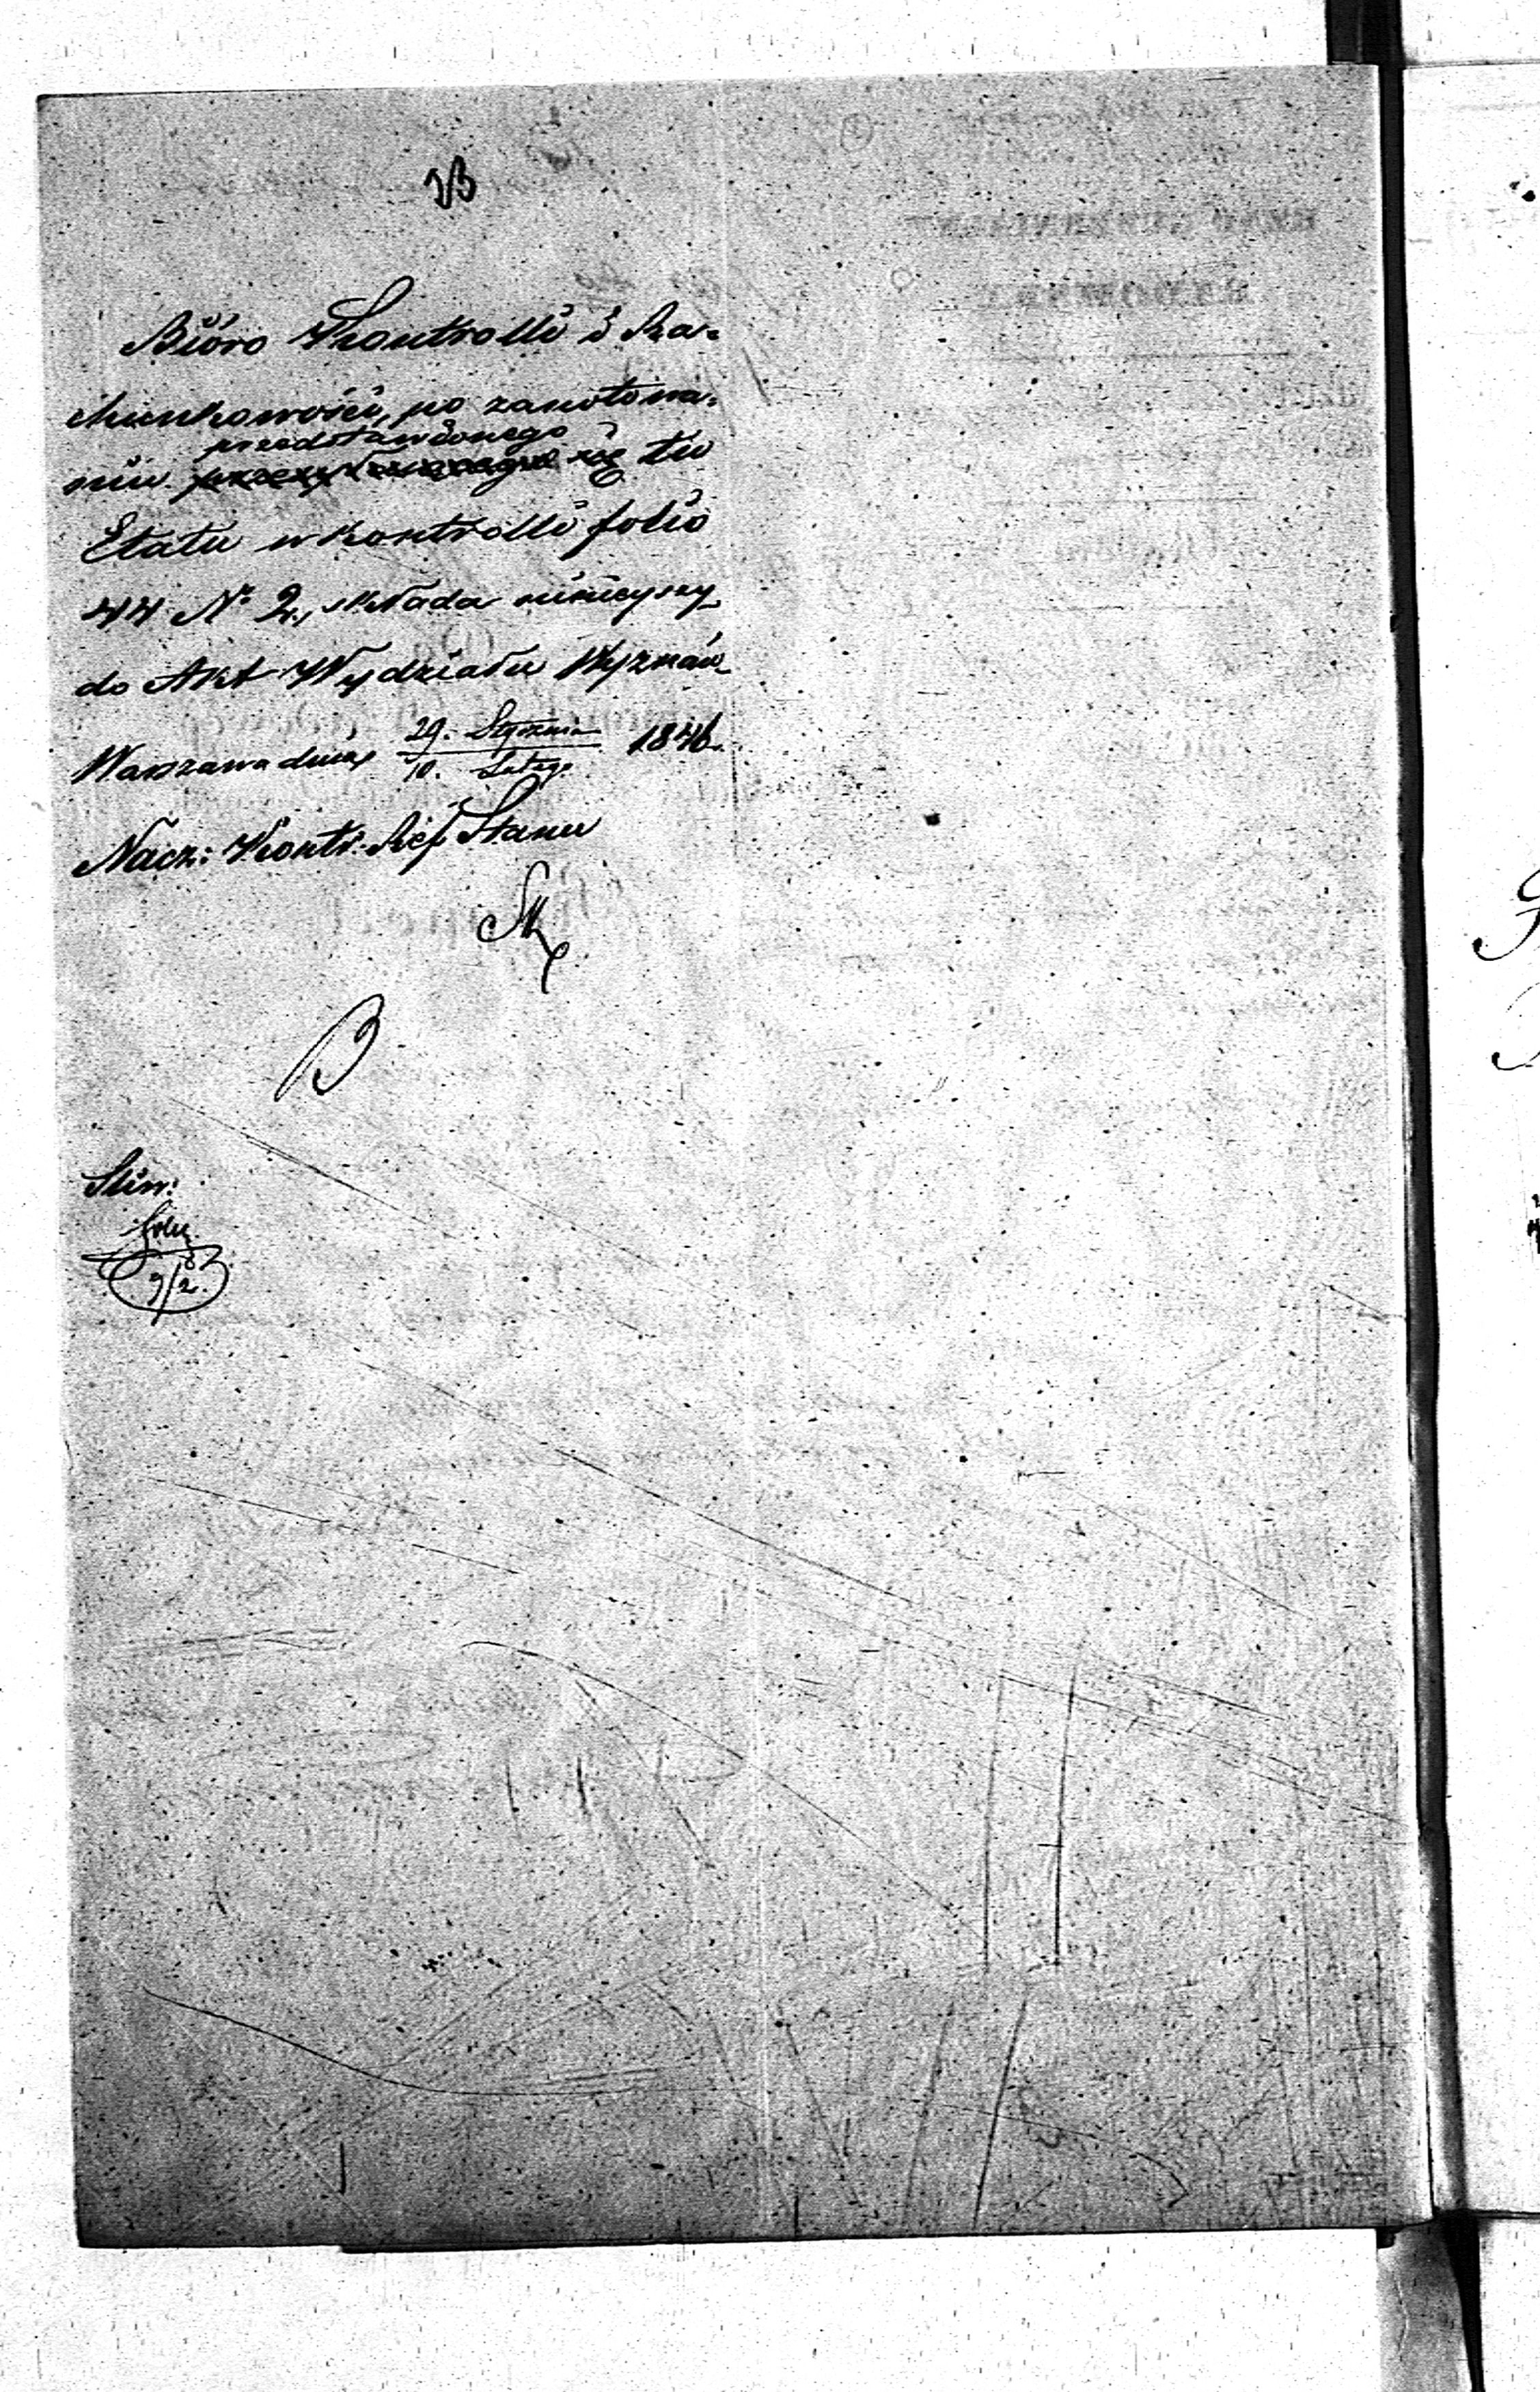 Bióro Kontrolli i Ra=
chunkowości, po zanotowa=
przedstawionego
niu się tu
Etatu w kontrolli folio
44 N° 2., składa niniejszy
do Akt Wydziału Wyznań
Warszawa dnia 29. Stycznia 1846.
10. Lutego
Nacz: Kontr: Stanu
B
9/2.